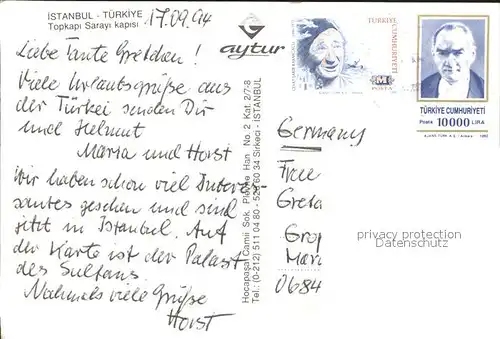 İSTANBUL - TÜRKİYE
Topkapı Sarayı kapısı
17.09.94
Liebe Tante Gretchen!
Viele Urlaubsgrüße aus
der Türkei senden Dir
und Helmut
Maria und Horst
Wir haben schon viel Interes-
santes gesehen und sind
jetzt in Istanbul. Auf
der Karte ist der Palast
des Sultans.
Nochmals viele Grüße
Horst
aytur
Hocapaşa Camii Sok. Han No. 2 Kat. 2/7-8
Tel.: (0-212) 511 04 80 - 529 60 34 Sirkeci - İSTANBUL
TÜRKİYE
CUMHURİYETİ
POSTA
TÜRKİYE CUMHURİYETİ
Posta 10000 LİRA
Germany
Frau
Greta
Grop
Mari
0684
privacy protection
Datenschutz